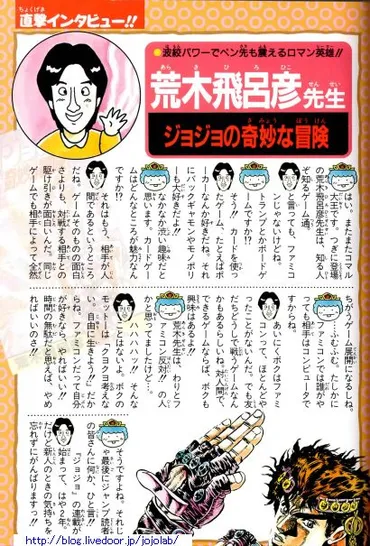 ちょくげき
直撃インタビュー!!
●波紋パワーでペン先も震えるロマン英雄!!
あらき ひろひこ せんせい
荒木飛呂彦先生
きみょう ぼうけん
ジョジョの奇妙な冒険
はい。またまたコマル
大王です。つぎに登場
の荒木飛呂彦先生は、知る人
ぞ知るゲーム通。
と言っても、ファミコ
ンじゃないけどね。
トランプとかボードゲ
ームですか!?
そう!! カードを使っ
たゲーム、たとえばポ
ーカーなんか好きだね。それ
にバックギャモンやモノポリ
ーも大好きだよ!!
なかなか渋い趣味だと
思います。カードゲー
ムはどんなところが魅力なん
ですか!?
それはもう、相手が人
間であるというところ
だね。ゲームそのもの面白
さよりも、対戦する相手との
駆け引きが面白いんだ。同じ
ゲームでも相手によって全然
ちがうゲーム展開になるしね。
…ふむふむ。たしかに
ファミコンでは誰がや
っても相手はコンピュータで
すからね。
あいにくボクはファミ
コンって、ほとんどや
ったことがないんだ。でも友
だちどうしで戦うゲームなん
かもあるらしいね。対人間で
できるゲームならば、ボクも
興味はあるよ!!
荒木先生は、わりとフ
ァミコン反対!! の人
かと思ってましたけど…。
ハハハハッ!! そんな
ことはないよ。ボクの
モットーは「クヨクヨ考えな
い。自由に生きよう!!」だか
らね。ファミコンだって自分
が好きなら、やればいい!!
時間の無駄だと思えば、やめ
ればいいのさ!!
そうですよね。それじ
ゃ最後にジャンプ読者
の皆さんに何か、ひと言!!
「ジョジョ」の連載が
始まって、はや2年。
だけど新人のときの気持ちを
忘れずにがんばりますっ!!
http://blog.livedoor.jp/jojolab/